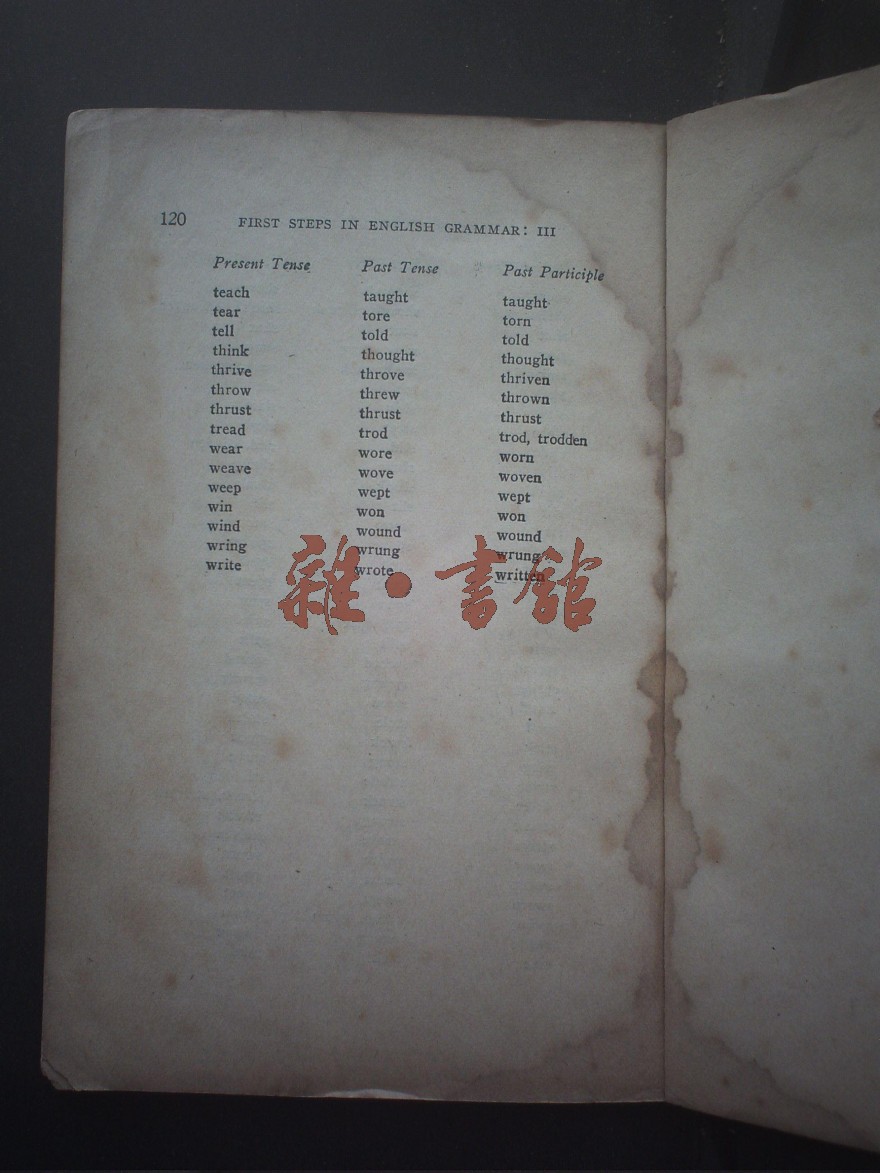 120 FIRST STEPS IN ENGLISH GRAMMAR: III
Present Tense Past Tense Past Participle
teach taught taught
tear tore torn
tell told told
think thought thought
thrive throve thriven
throw threw thrown
thrust thrust thrust
tread trod trod, trodden
wear wore worn
weave wove woven
weep wept wept
win won won
wind wound wound
wring wrung wrung
write wrote written
雜•書館